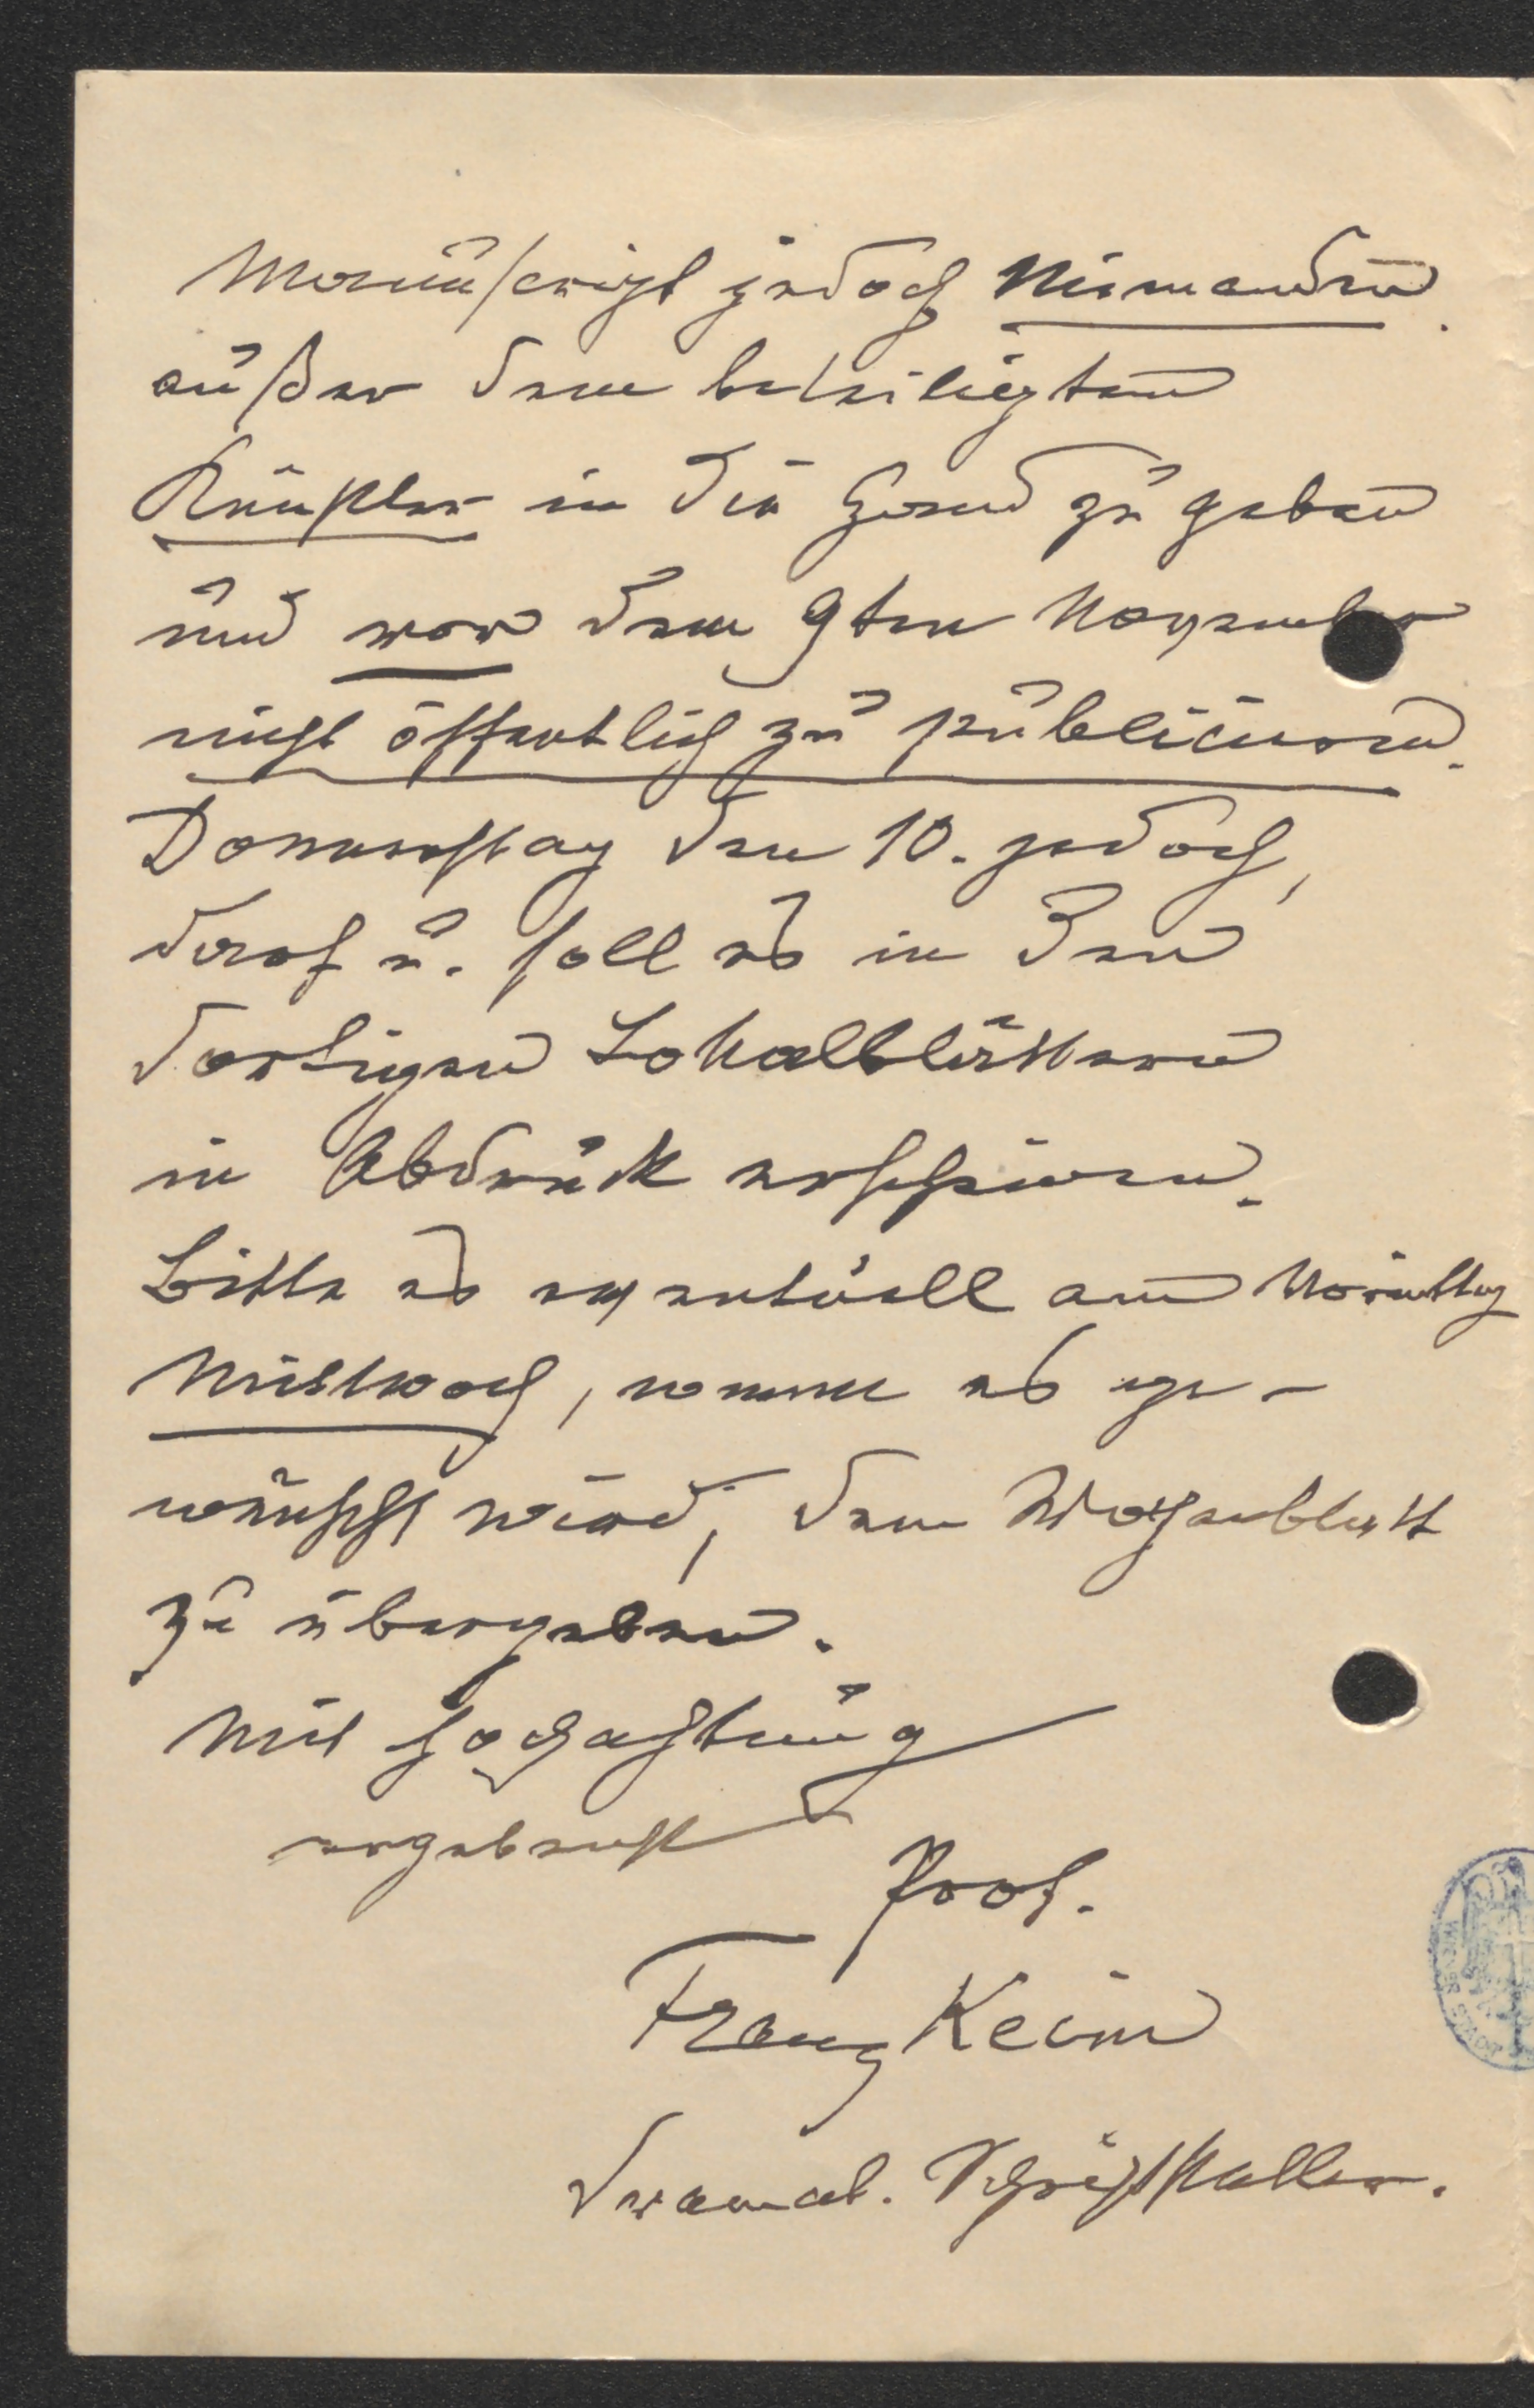 Manuscript jedoch Niemanden
außer dem beteiligten
Künstler in die Hand zu geben
und vor dem 9ten November
nicht öffentlich zu publiciren.
Donnerstag den 10. jedoch,
darf u. soll es in den
dortigen Lokalblättern
in Abdruck erscheinen.
Bitte es eventuell am Vormittag
Mittwoch, wenn es ge-
wünscht wird, dem Wochenblatt
zu übergeben.
Mit Hochachtung
ergebenst
Prof.
Franz Keim
dramat. Schriftsteller.
WIENER STADT